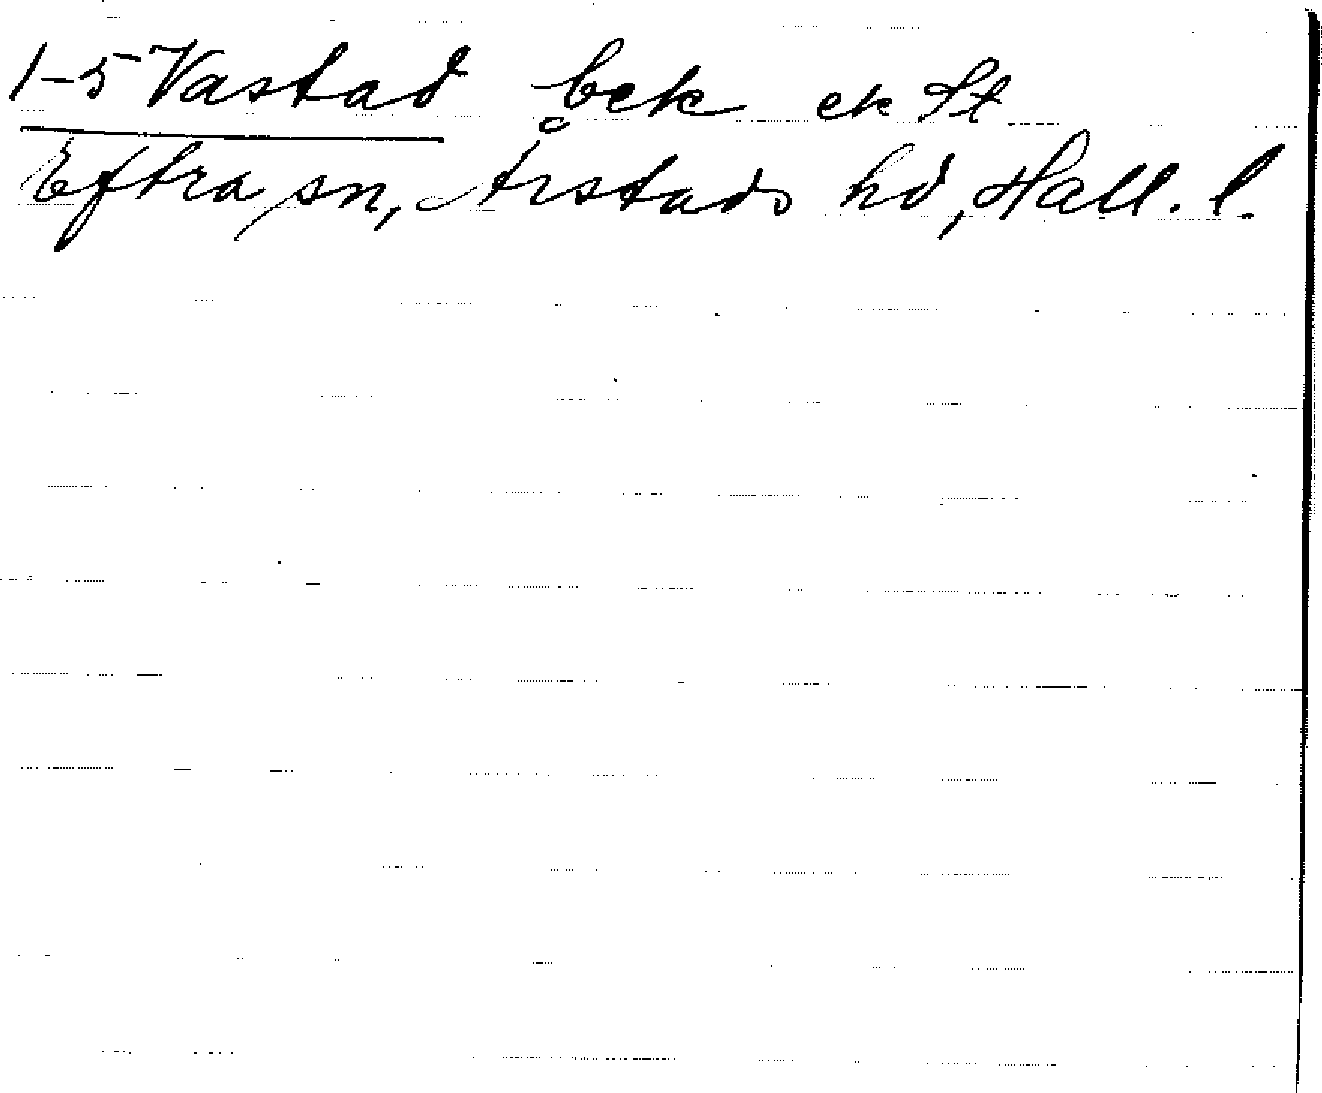 1-5 Vastad bek ek St
Eftra sn, Årstads hd, Hall. l.